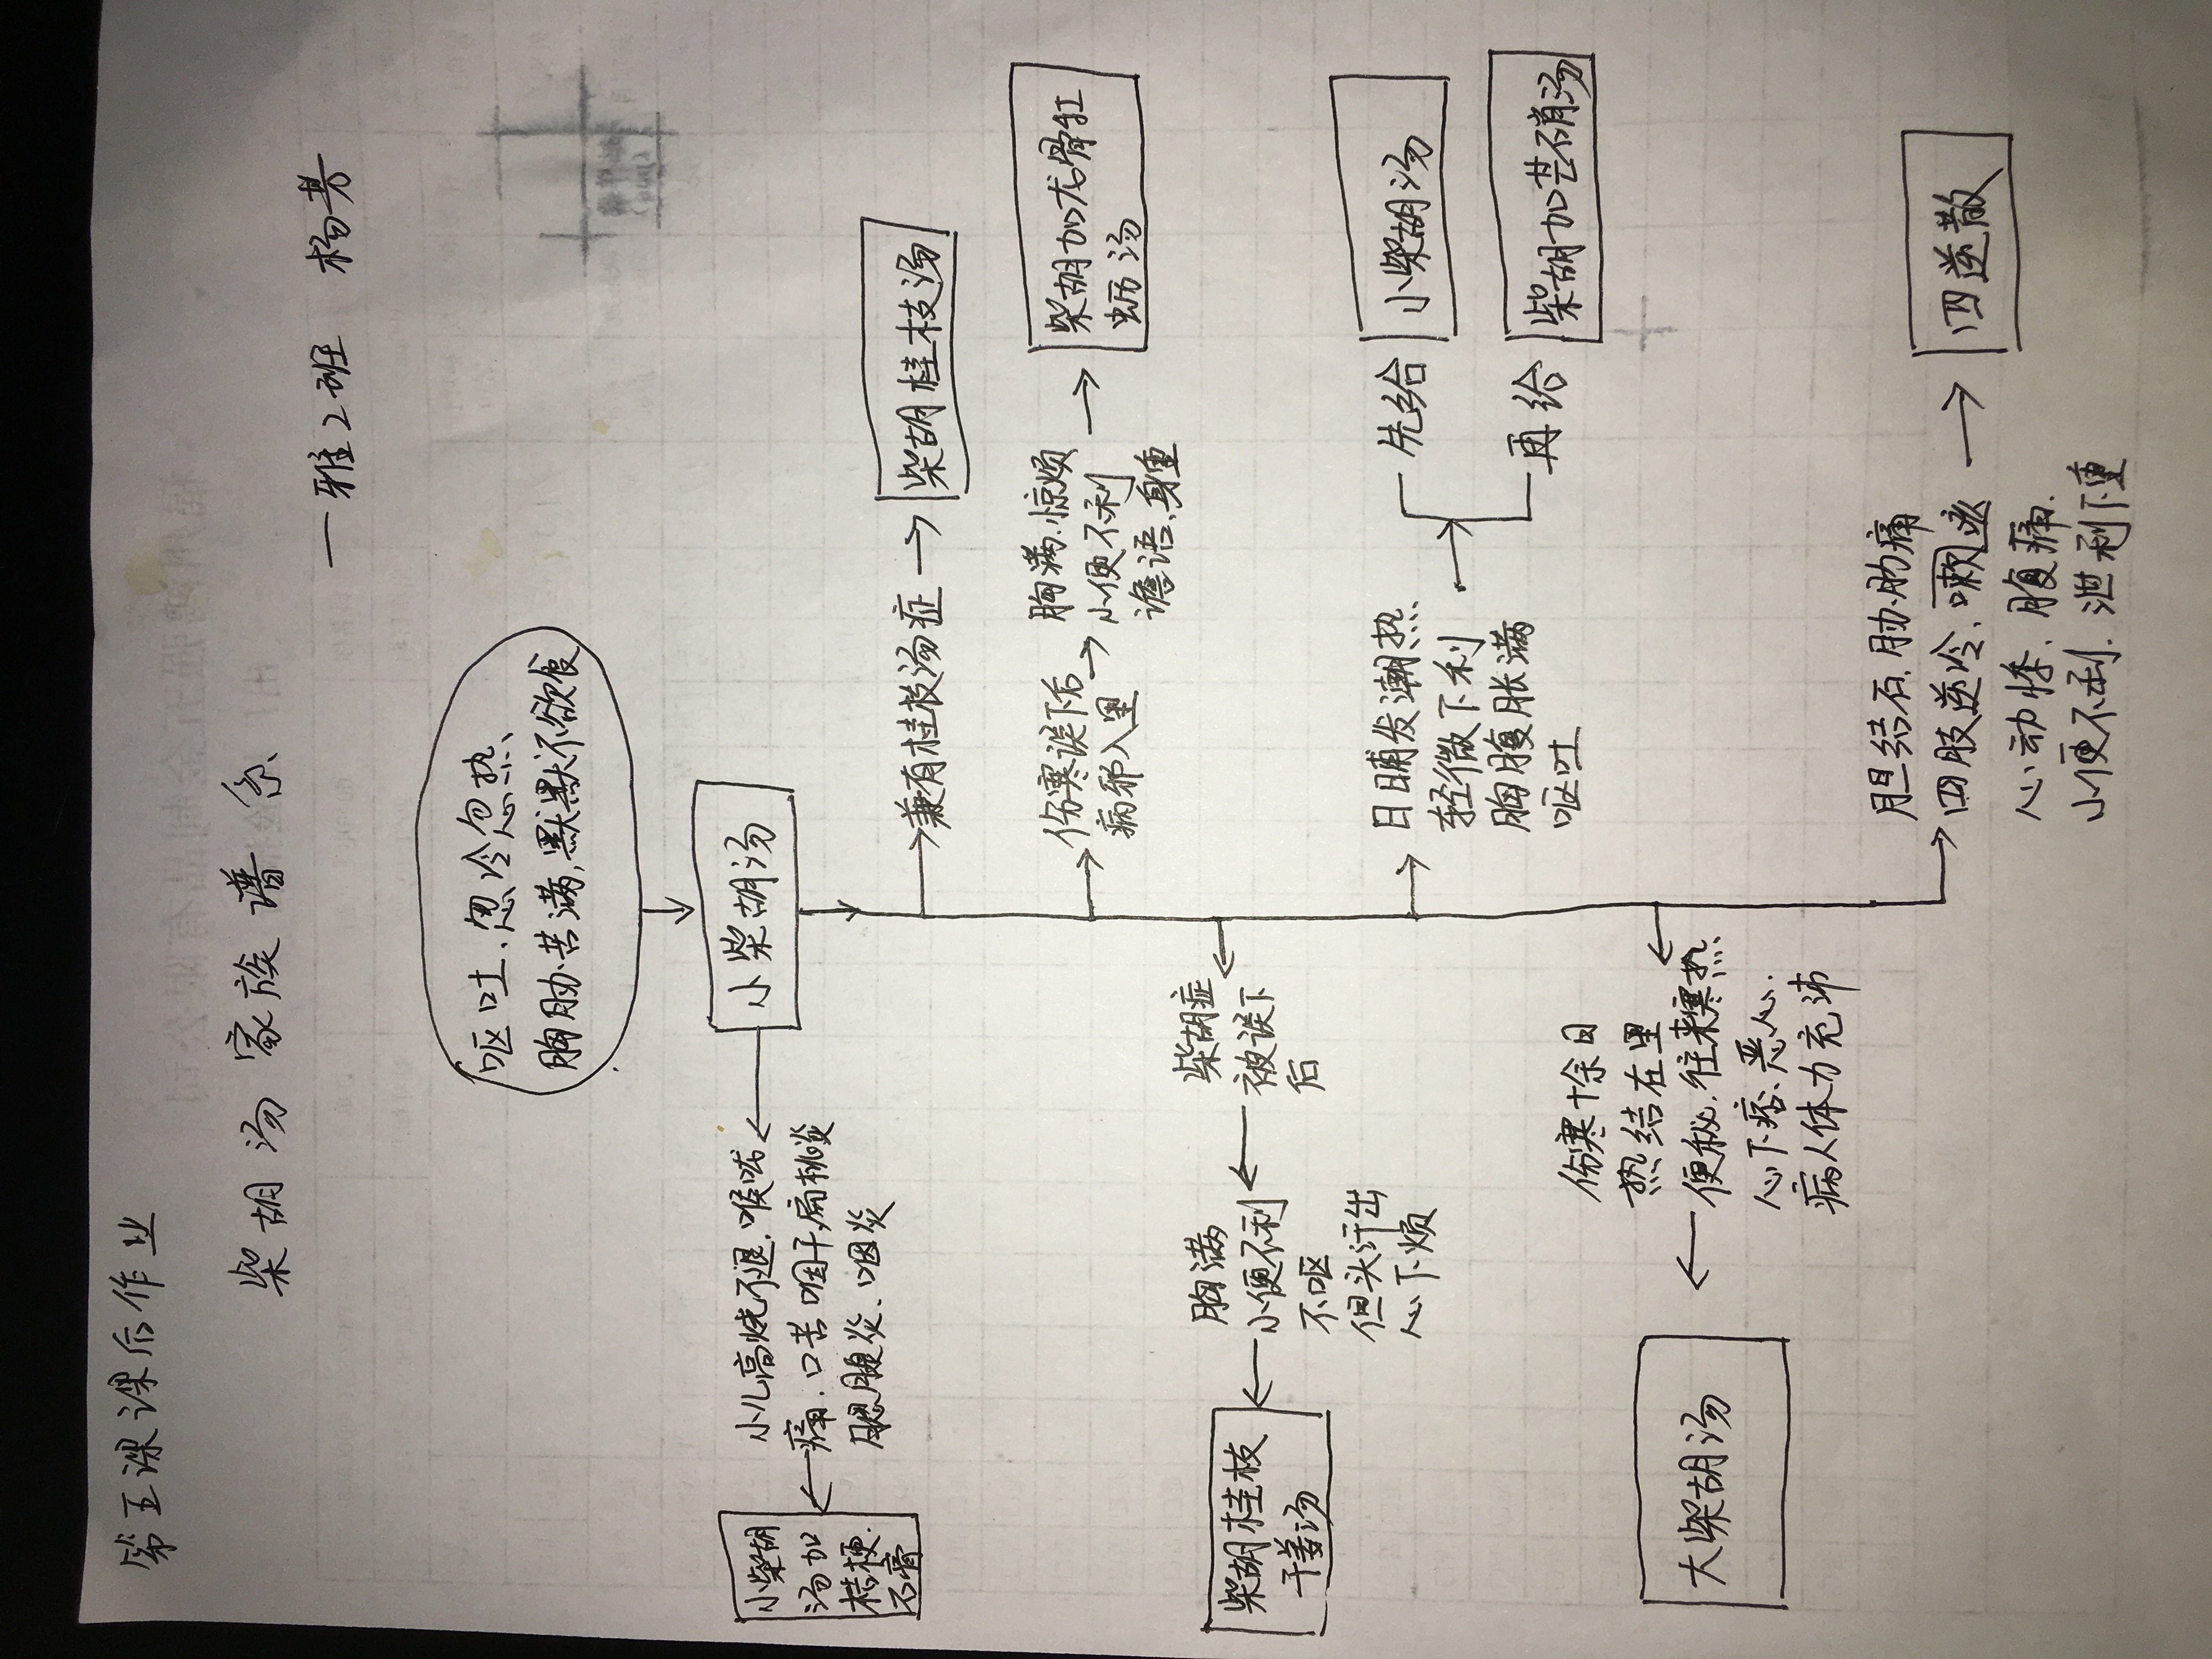 第五课课后作业
柴胡汤家族谱系
一雅2班 杨芳
呕吐、忽冷忽热、
胸胁苦满,默默不欲食
小柴胡汤
小儿高烧不退,喉咙
痛、口苦咽干,扁桃炎
腮腺炎、咽炎
小柴胡
汤加
桔梗、
石膏
兼有桂枝汤症
柴胡桂枝汤
伤寒误下后
病邪入里
胸满、惊烦
小便不利
谵语、身重
柴胡加龙骨牡
蛎汤
柴胡症
被误下
后
胸满
小便不利
不呕
但头汗出
心下烦
柴胡桂枝
干姜汤
日日晡发潮热、
轻微下利
胸腹胀满
呕吐
先给
小柴胡汤
再给
柴胡加芒硝汤
伤寒十余日
热结在里
便秘、往来寒热、
心下痞、恶心、
病人体力充沛
大柴胡汤
胆结石、胁肋痛
四肢逆冷、嗽
心动悸、腹痛、
小便不利、泄利下重
四逆散